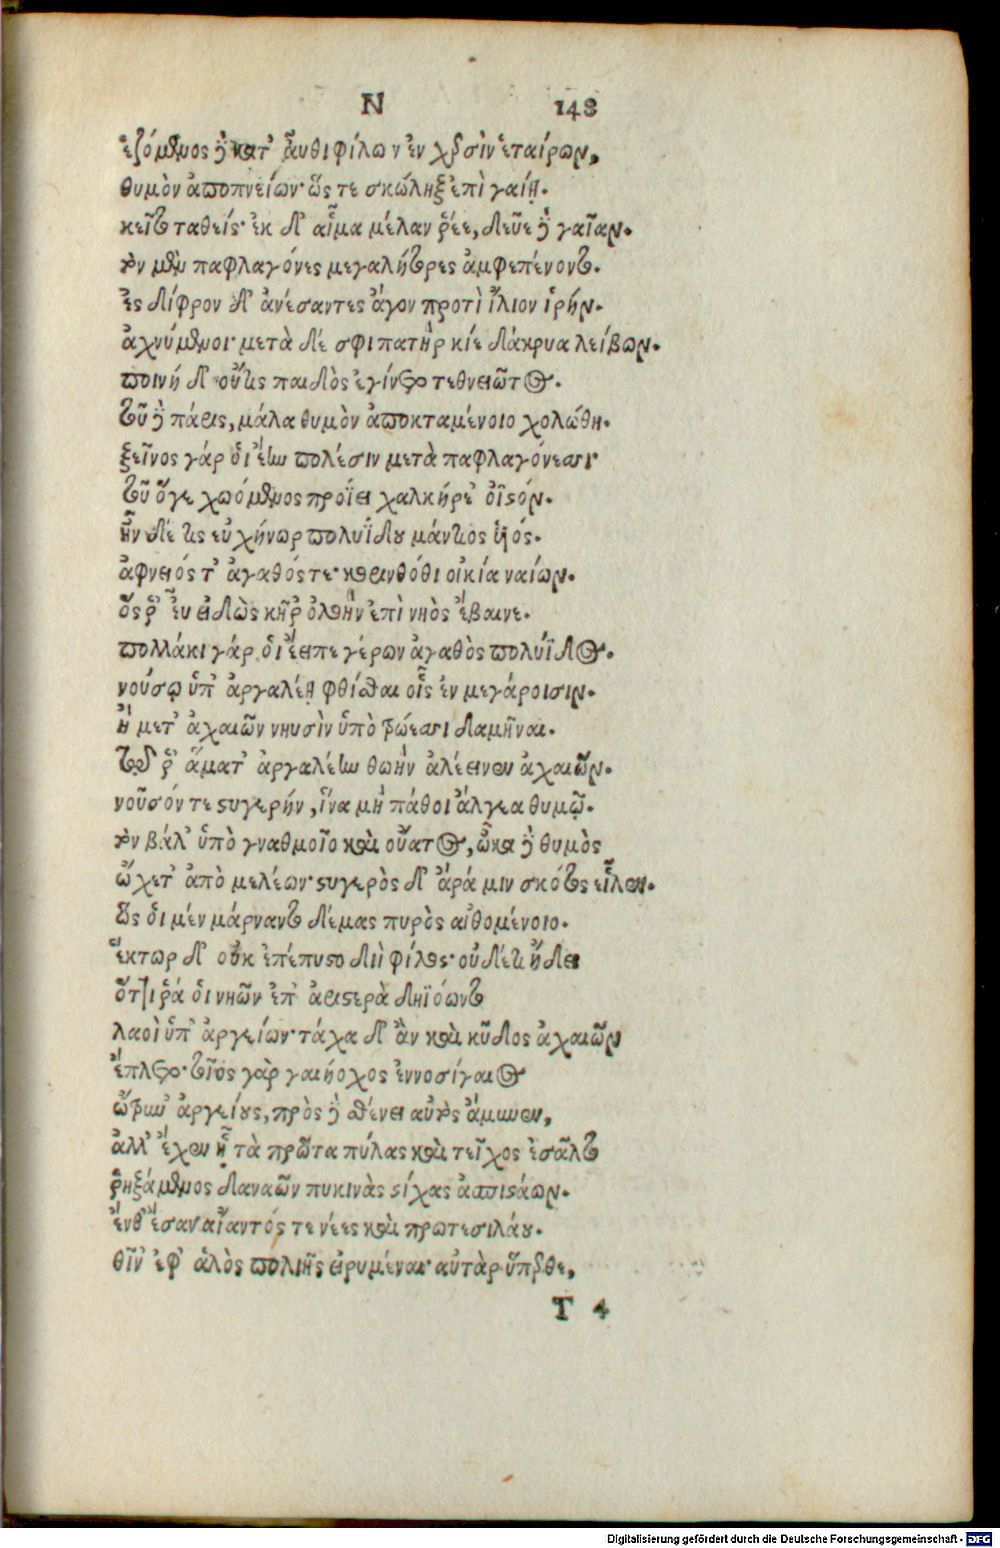 Ν 148
ἑζόμενος δὲ κατ' αὖθι φίλων ἐν χερσὶν ἑταίρων,
θυμὸν ἀποπνείων· ὥς τε σκώληξ ἐπὶ γαίῃ.
κεῖτο ταθείς· ἐκ δ' αἷμα μέλαν ῥέε, δεῦε δὲ γαῖαν.
τὸν μὲν παφλαγόνες μεγαλήτορες ἀμφεπένοντο.
ἐς δίφρον δ' ἀνέσαντες ἄγον προτὶ ἴλιον ἱρήν.
ἀχνύμενοι· μετὰ δέ σφι πατὴρ κίε δάκρυα λείβων.
ποινὴ δ' οὔτις παιδὸς ἐγίνετο τεθνειῶτος.
τοῦ δὲ πάρις, μάλα θυμὸν ἀποκταμένοιο χολώθη.
ξεῖνος γάρ οἱ ἔην πολέσιν μετὰ παφλαγόνεσσι·
τοῦ ὅγε χωόμενος προΐει χαλκήρε' ὀϊστόν.
ἦν δέ τις εὐχήνωρ πολυΐδου μάντιος υἱός.
ἀφνειός τ' ἀγαθός τε· κορινθόθι οἰκία ναίων.
ὅς ῥ' εὖ εἰδὼς κῆρ' ὀλοὴν ἐπὶ νηὸς ἔβαινε.
πολλάκι γάρ οἱ ἔειπε γέρων ἀγαθὸς πολύϊδος.
νούσῳ ὑπ' ἀργαλέῃ φθίσθαι οἷς ἐν μεγάροισιν.
ἢ μετ' ἀχαιῶν νηυσὶν ὑπὸ τρώεσσι δαμῆναι.
τῷ ῥ' ἅματ' ἀργαλέην θωὴν ἀλέεινεν ἀχαιῶν.
νοῦσόν τε στυγερήν, ἵνα μὴ πάθοι ἄλγεα θυμῷ.
τὸν βάλ' ὑπὸ γναθμοῖο καὶ οὔατος, ὦκα δὲ θυμὸς
ᾤχετ' ἀπὸ μελέων· στυγερὸς δ' ἄρά μιν σκότος εἷλεν.
ὣς οἱ μέν μάρναντο δέμας πυρὸς αἰθομένοιο.
ἕκτωρ δ' οὐκ ἐπέπυστο διῒ φίλος· οὐδέ τι ᾔδει
ὅττι ῥά οἱ νηῶν ἐπ' ἀριστερὰ δηϊόωντο
λαοὶ ὑπ' ἀργείων· τάχα δ' ἂν καὶ κῦδος ἀχαιῶν
ἔπλετο· τοῖος γὰρ γαιήοχος ἐννοσίγαιος
ὤτρυν' ἀργείους, πρὸς δὲ σθένει αὐτὸς ἄμυνεν,
ἀλλ' ἔχεν ᾗ τὰ πρῶτα πύλας καὶ τεῖχος ἐσᾶλτο
ῥηξάμενος δαναῶν πυκινὰς στίχας ἀσπιστάων.
ἔνθ' ἔσαν αἴαντός τε νέες καὶ πρωτεσιλάου.
θῖν' ἐφ' ἁλὸς πολιῆς εἰρυμέναι· αὐτὰρ ὕπερθε,
T 4
Digitalisierung gefördert durch die Deutsche Forschungsgemeinschaft - DFG